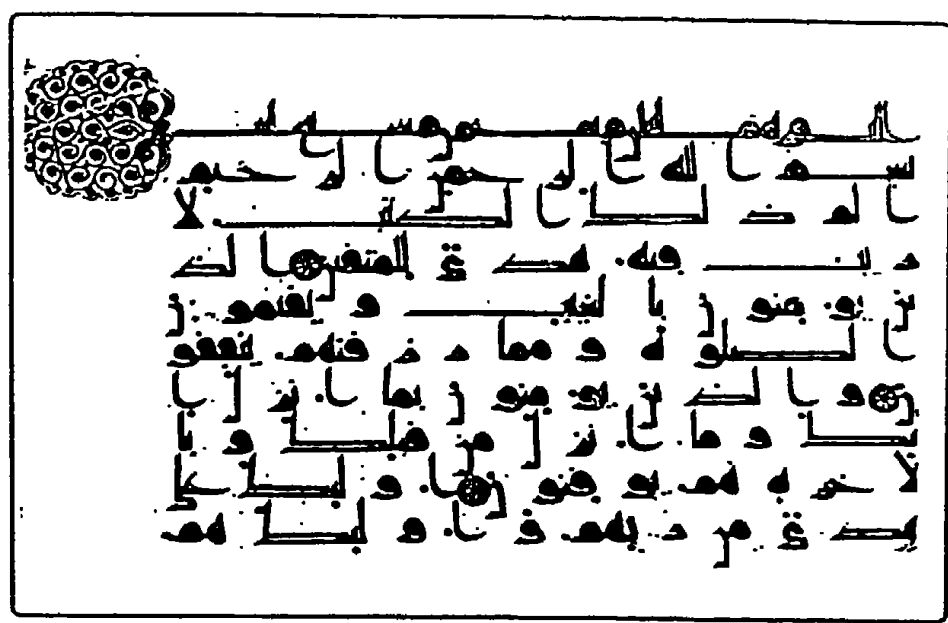 بسم الله الرحمن الرحيم
الم ذلك الكتب لا
ريب فيه هدى للمتقين الذ
ين يومنون بالغيب و يقيمون
الصلوة و مما رزقنهم ينفقو
ن و الذين يومنون بما انزل ا
ليك و ما انزل من قبلك و با
لاخرة هم يوقنون اوليك على
هدى من ربهم و اوليك هم